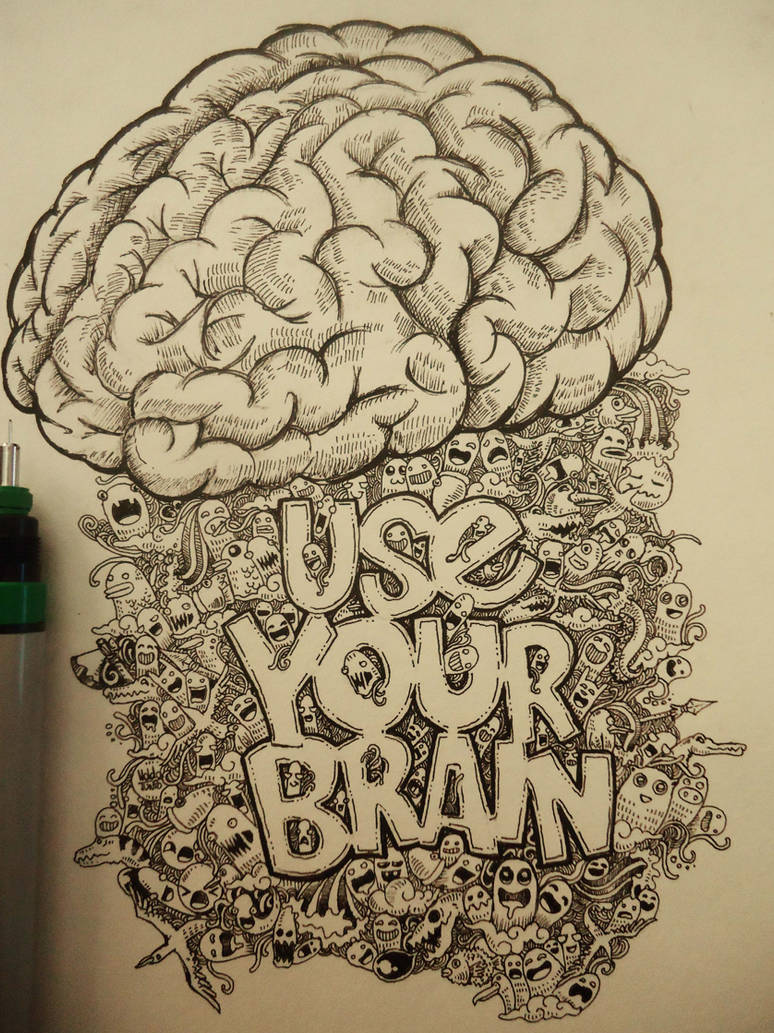 USe
YOUR
BRAIN